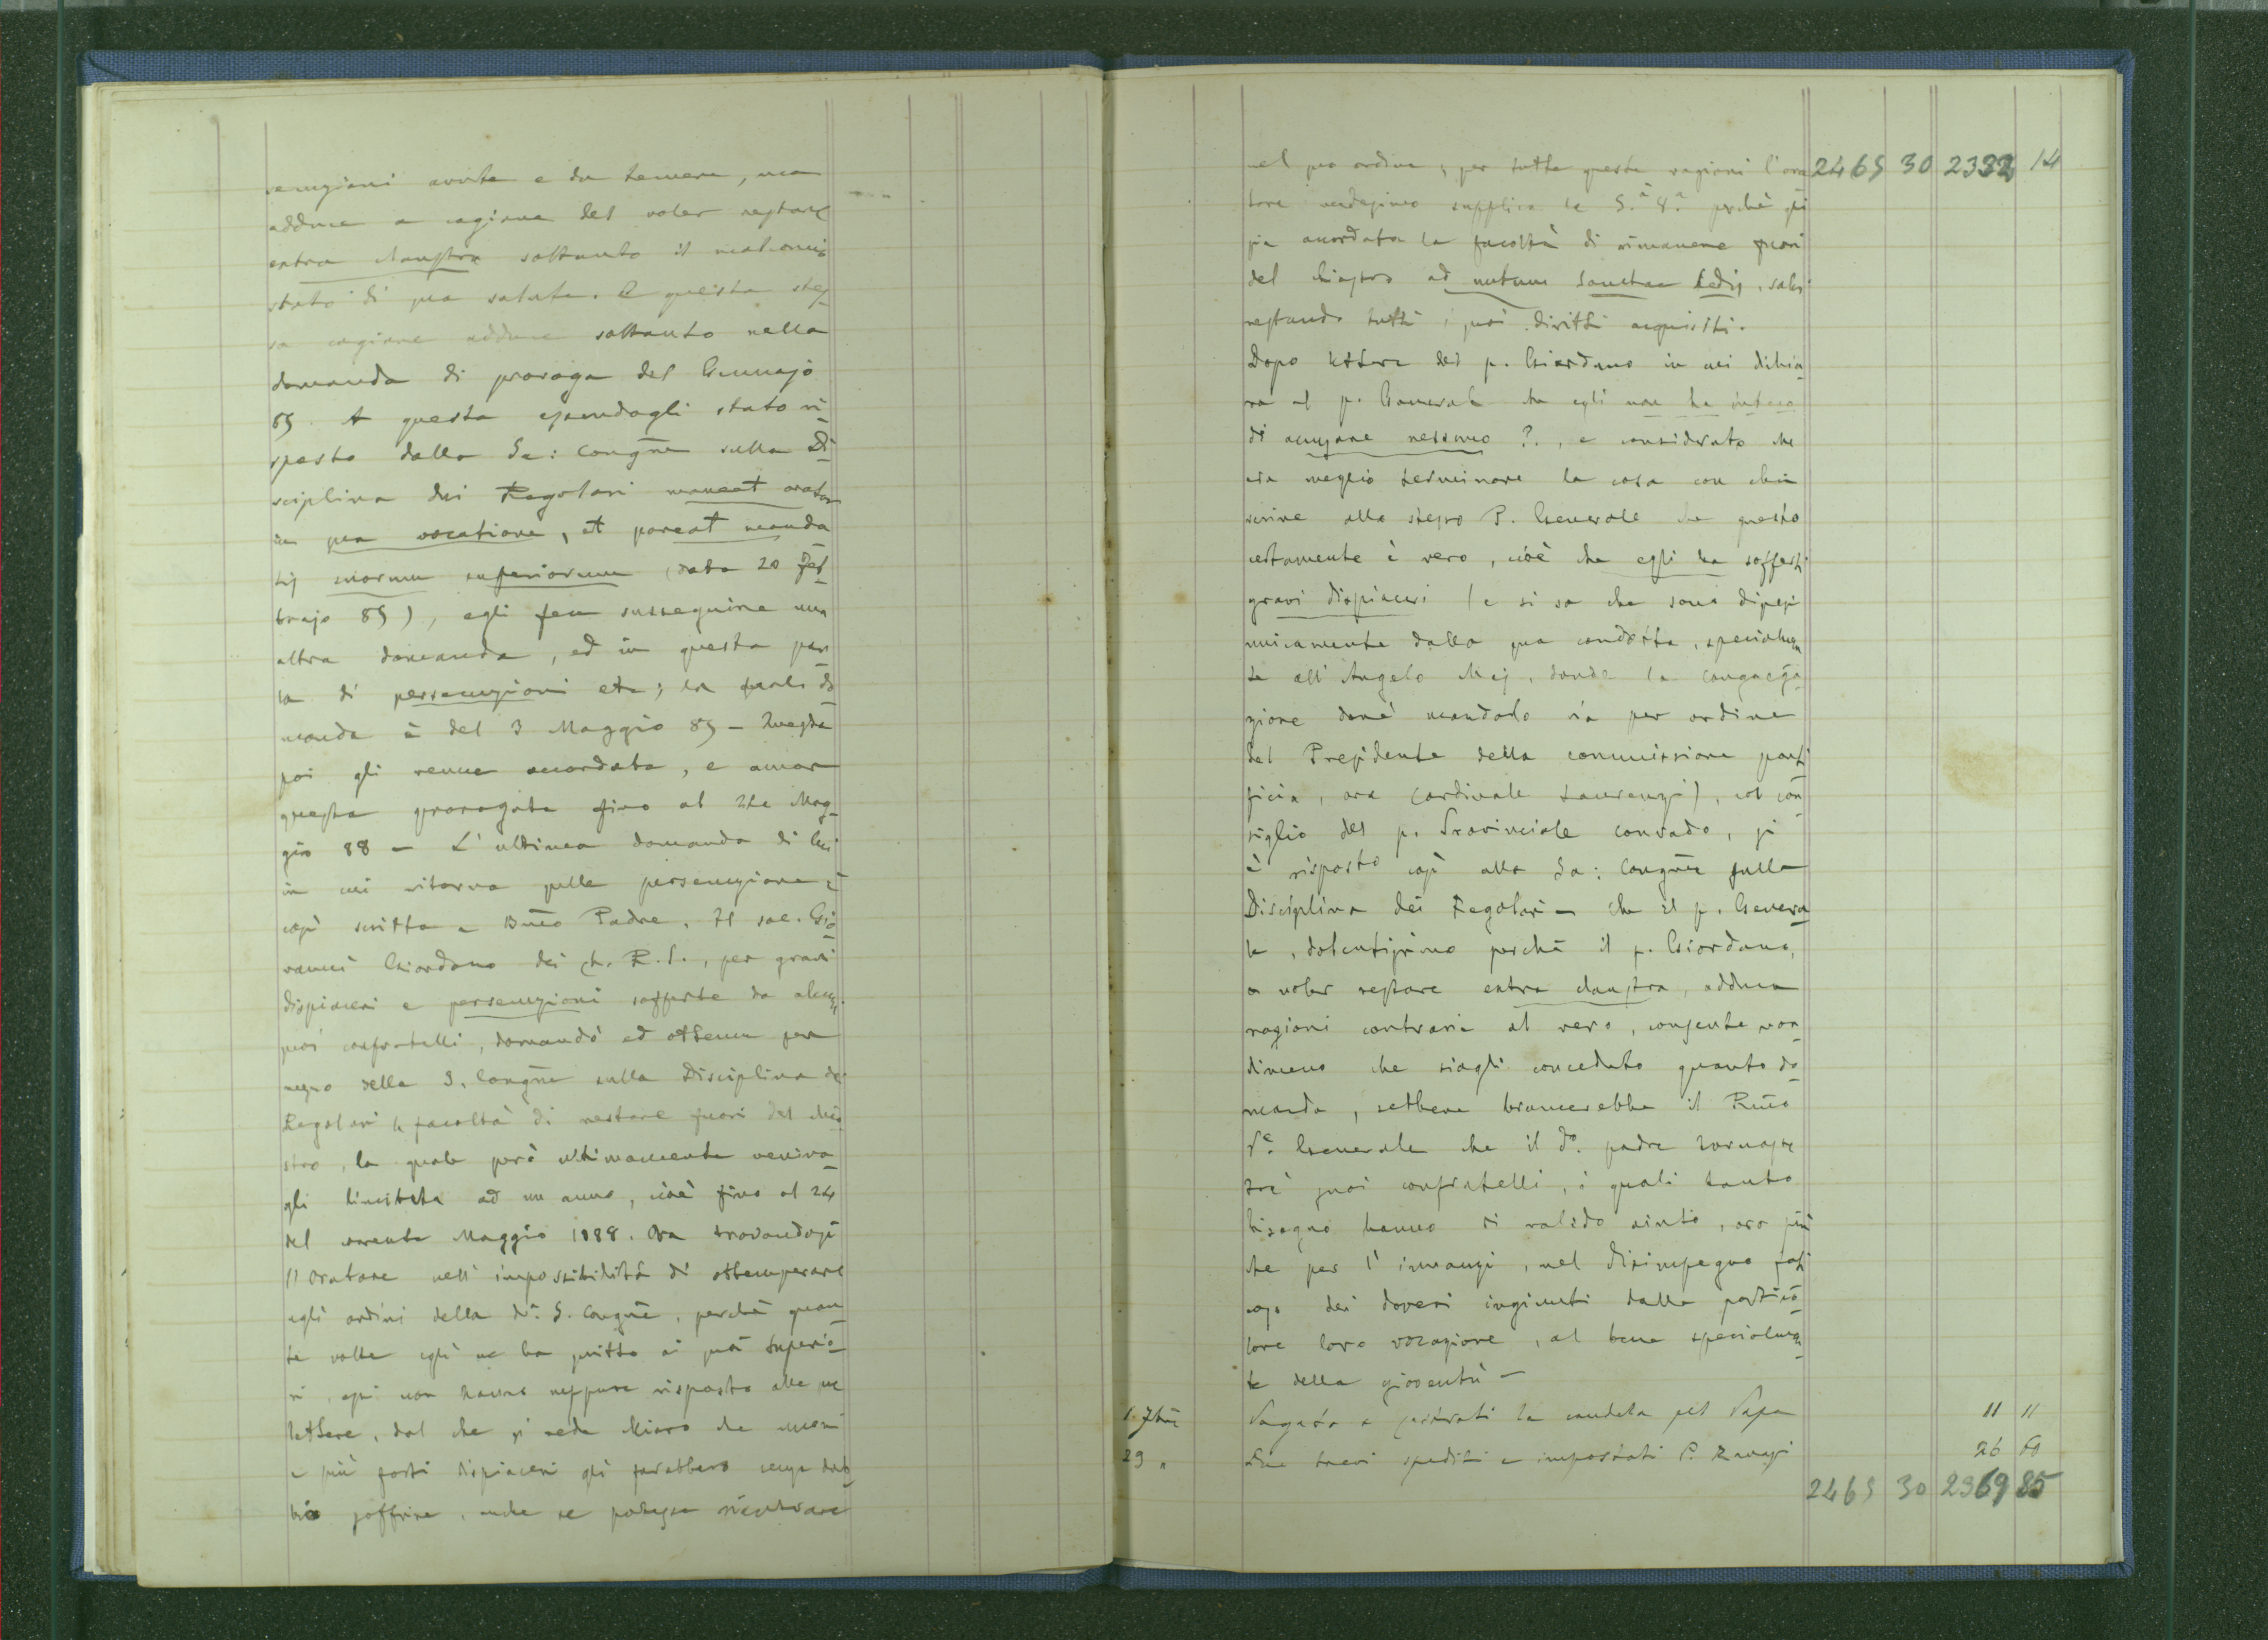 secuzioni avute e da temere, ma
adduce a cagione del voler restare
extra claustra soltanto il malconcio
stato di sua salute. E questa stes-
sa cagione adduce soltanto nella
domanda di proroga del Gennajo
85. A questa essendogli stato ri-
sposto dalla Sa: Congñe sulla Di-
sciplina dei Regolari maneat orator
in sua vocatione, et pareat manda
tis suorum superiorum (data 20 Feb-
brajo 85), egli fece susseguire un
altra domanda, ed in questa par
la di persecuzioni etc; la quale do
manda è del 3 Maggio 85 - Questa
poi gli venne accordata, e ancor
questa prorogata fino al 24 Mag-
gio 88 - L'ultima domanda di lui
in cui ritorna sulle persecuzione è
così scritta - Bm̃o Padre. Il sac. Gio
vanni Giordano dei ch. R. S., per gravi
dispiaceri e persecuzioni sofferte da alcuni
suoi confratelli, domandò ed ottenne per
mezzo della S. Congñe sulla Disciplina dei
Regolari la facoltà di restare fuori del chio
stro, la quale però ultimamente veniva-
gli limitata ad un anno, cioè fino al 24
del corrente Maggio 1888. Ora trovandosi
l'Oratore nell'impossibilità di ottemperare
agli ordini della d.ª S. Congñe, perchè quan-
te volte egli ne ha scritto ai suoi Superio-
ri, essi non hanno neppure risposto alle sue
lettere, dal che si vede chiaro che nuovi
e più forti dispiaceri gli farebbero senza dub
bio soffrire, anche se potesse rientrare
nel suo ordine; per tutte queste ragioni l'ora 2465 30 2332 14
tore medesimo supplica la S.ª V.ª perchè gli
sia accordata la facoltà di rimanere fuori
del chiostro ad nutum Sanctae Sedis, salvi
restando tutti i suoi diritti acquisiti.
Dopo lettere del p. Giordano in cui dichia
ra al p. Generale che egli non ha inteso
di accusare nessuno ?., e considerato che
era meglio terminare la cosa con chi
scrive allo stesso P. Generale che questo
certamente è vero, cioè che egli ha sofferti
gravi dispiaceri (e si sa che sono dipesi
unicamente dalla sua condotta, specialmen
te all'Angelo Maj, donde la Congrega-
zione dové mandarlo via per ordine
del Presidente della commissione ponti
ficia, ora Cardinale Laurenzi), col con
siglio del p. Provinciale Conrado, si
è risposto così alla Sa: Congñe sulla
Disciplina dei Regolari - che il p. Genera
le, dolentissimo perchè il p. Giordano,
a voler restare extra claustra, adduca
ragioni contrarie al vero, consente non
dimeno che siagli conceduto quanto do-
manda, sebbene bramerebbe il Rm̃o
P.e Generale che il d.º padre tornasse
tra' suoi confratelli, i quali tanto
bisogno hanno di valido aiuto, ora più
che per l'innanzi, nel disimpegno fati
coso dei doveri ingiunti dalla partico-
lare loro vocazione, al bene specialmen
te della gioventù -
1. 7bre Pagata a la candela pel Papa 11 11
29 " Due brevi spediti e impostati P. 26 60
2465 30 2369 85